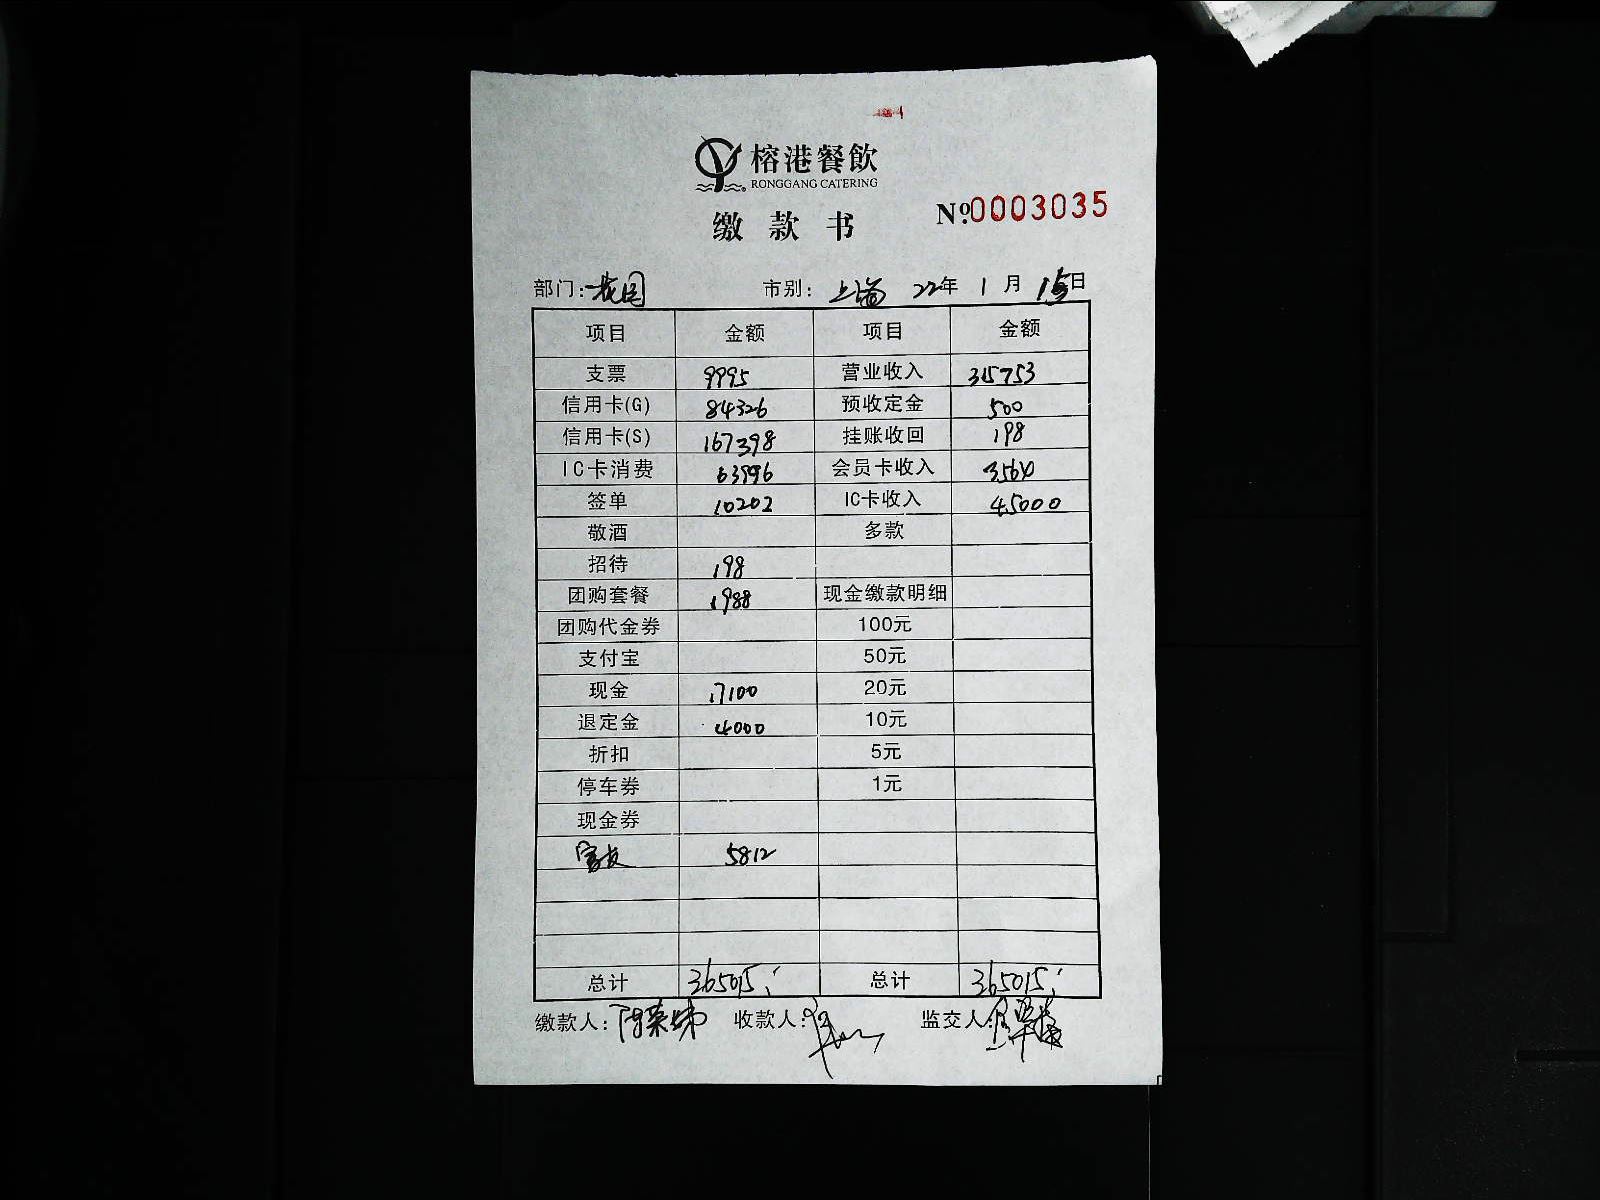 榕港餐飲
RONGGANG CATERING
缴款书
№0003035
部门: 花园 市别: 上海 22年 1月 15日
项目 金额 项目 金额
支票 9995 营业收入 315753
信用卡(G) 84326 预收定金 500
信用卡(S) 167398 挂账收回 198
IC卡消费 63996 会员卡收入 3564
签单 10202 IC卡收入 45000
敬酒 多款
招待 198
团购套餐 1988 现金缴款明细
团购代金券 100元
支付宝 50元
现金 17100 20元
退定金 4000 10元
折扣 5元
停车券 1元
现金券
富友 5812
总计 365015 总计 365015
缴款人: 收款人: 监交人: